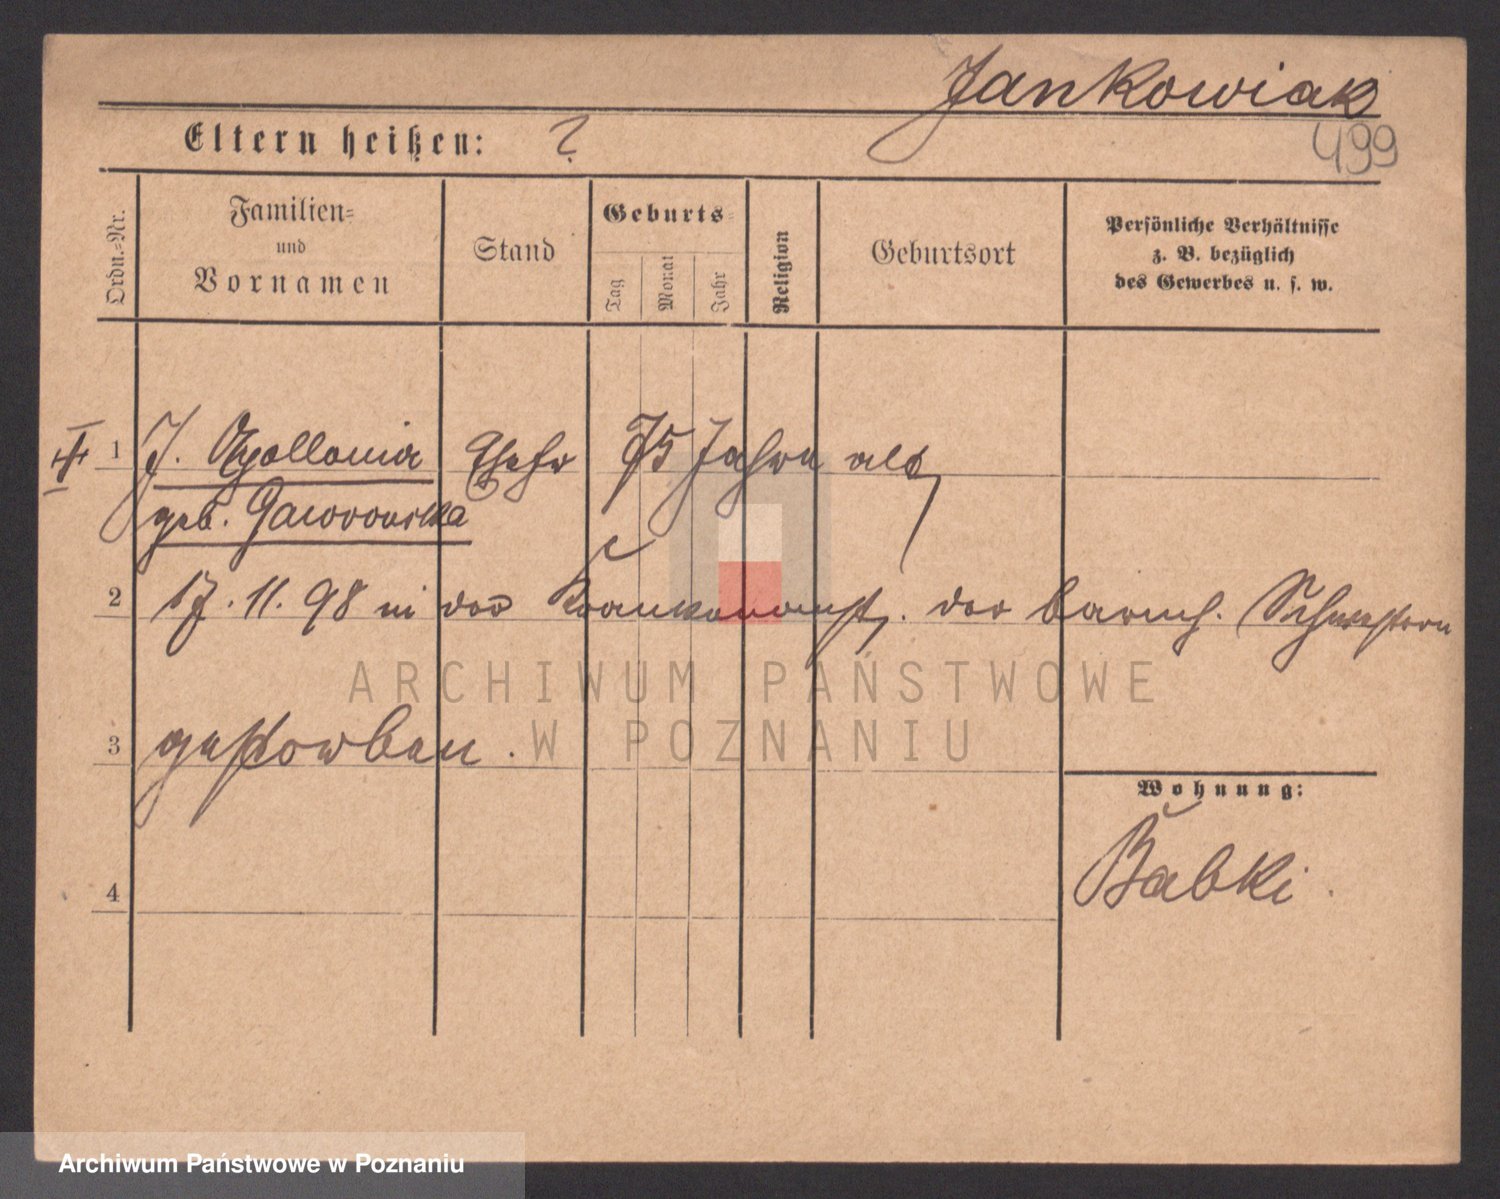 Jankowiak
499
Eltern heißen: ?
Ordn.-Nr.
Familien-
und
Vornamen
Stand
Geburts-
Tag
Monat
Jahr
Religion
Geburtsort
Persönliche Verhältnisse
z. B. bezüglich
des Gewerbes u. s. w.
1 J. Apollonia Ehefr 75 Jahre alt,
geb. Gaworowska
2 17. 11. 98 in der Krankenanst. der barmh. Schwestern
3 gestorben.
4
Wohnung:
Babki.
ARCHIWUM PAŃSTWOWE
W POZNANIU
Archiwum Państwowe w Poznaniu